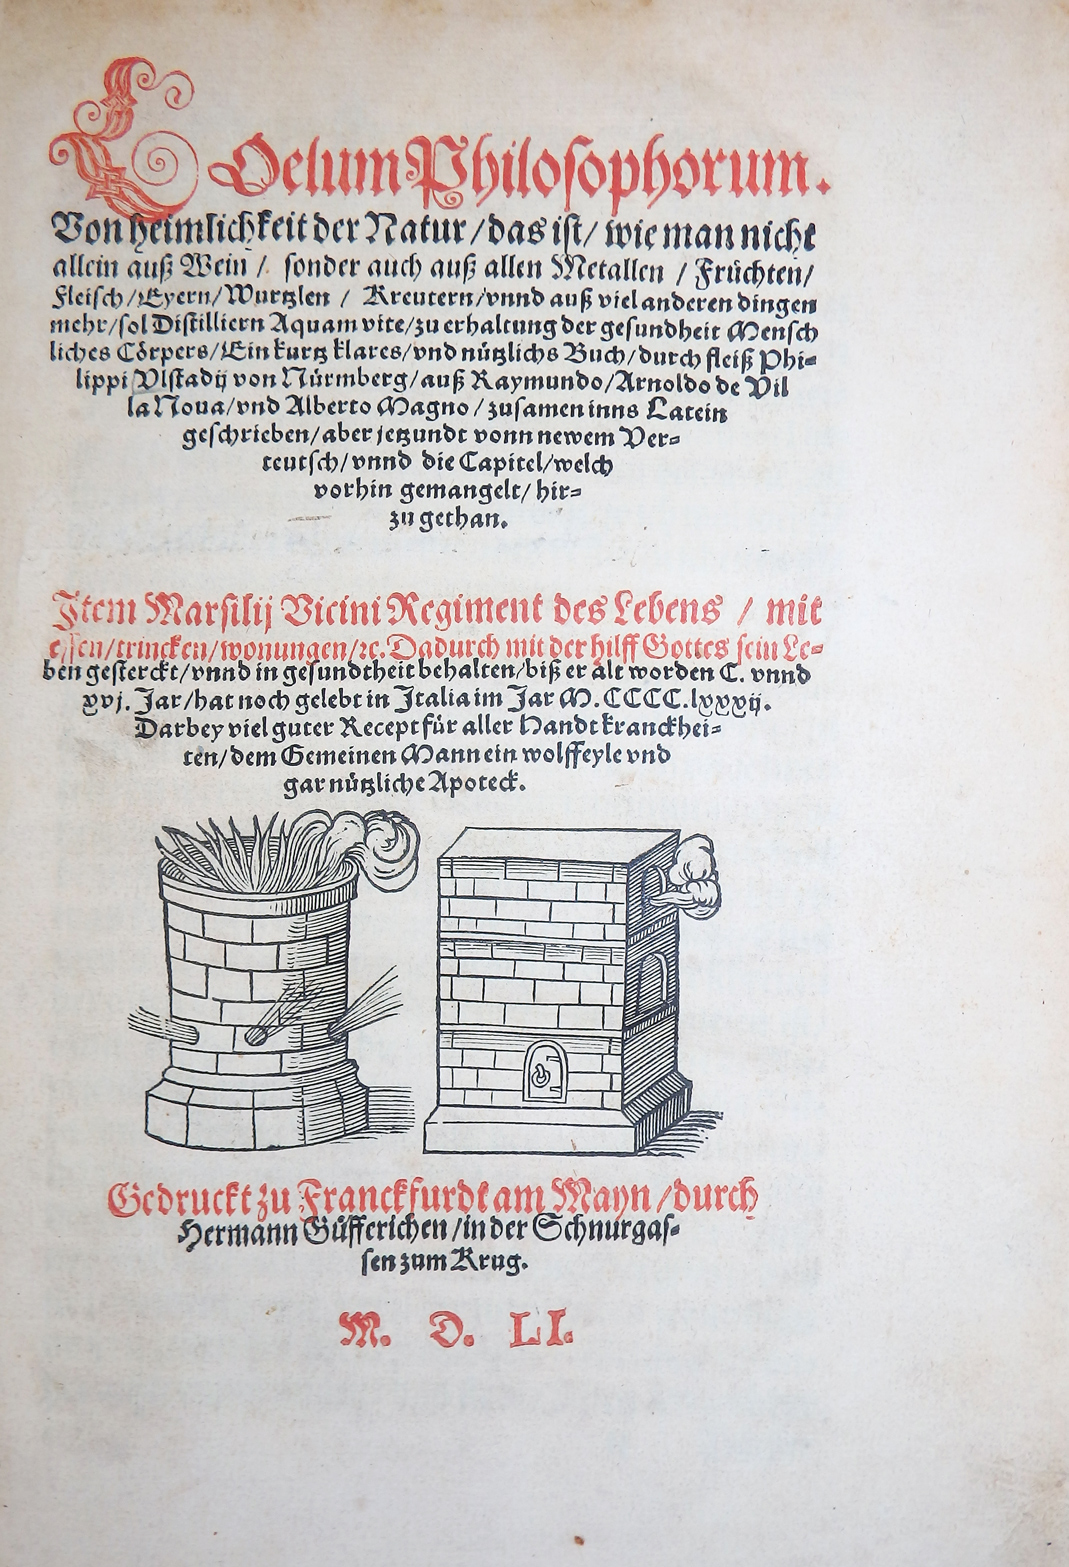 COelum Philosophorum.
Von heimlichkeit der Natur/das ist/ wie man nicht
allein auß Wein / sonder auch auß allen Metallen / Früchten/
Fleisch/Eyern/Wurtzlen / Kreutern/vnnd auß viel anderen dingen
mehr/sol Distilliern Aquam vite/zu erhaltung der gesundheit Mensch
liches Cörpers/Ein kurtz klares/vnd nützlichs Buch/durch fleiß Phi⸗
lippi Vlstadij von Nürmberg/auß Raymundo/Arnoldo de Vil
la Noua/vnd Alberto Magno/zusamen inns Latein
geschrieben/aber jetzundt vonn newem Ver⸗
teutsch/vnnd die Capitel/welch
vorhin gemangelt/hir⸗
zu gethan.
Item Marsilij Vicini Regiment des Lebens / mit
essen/trincken/wonungen/ꝛc. Dadurch mit der hilff Gottes sein Le⸗
ben gesterckt/vnnd in gesundtheit behalten/biß er alt worden C. vnnd
xvj. Jar/hat noch gelebt in Italia im Jar M.CCCC.lxxxij.
Darbey viel guter Recept für aller Handt kranckhei⸗
ten/dem Gemeinen Mann ein wolffeyle vnd
gar nützliche Apoteck.
Gedruckt zu Franckfurdt am Mayn/durch
Hermann Gülfferichen/in der Schnurgas⸗
sen zum Krug.
M. D. LI.